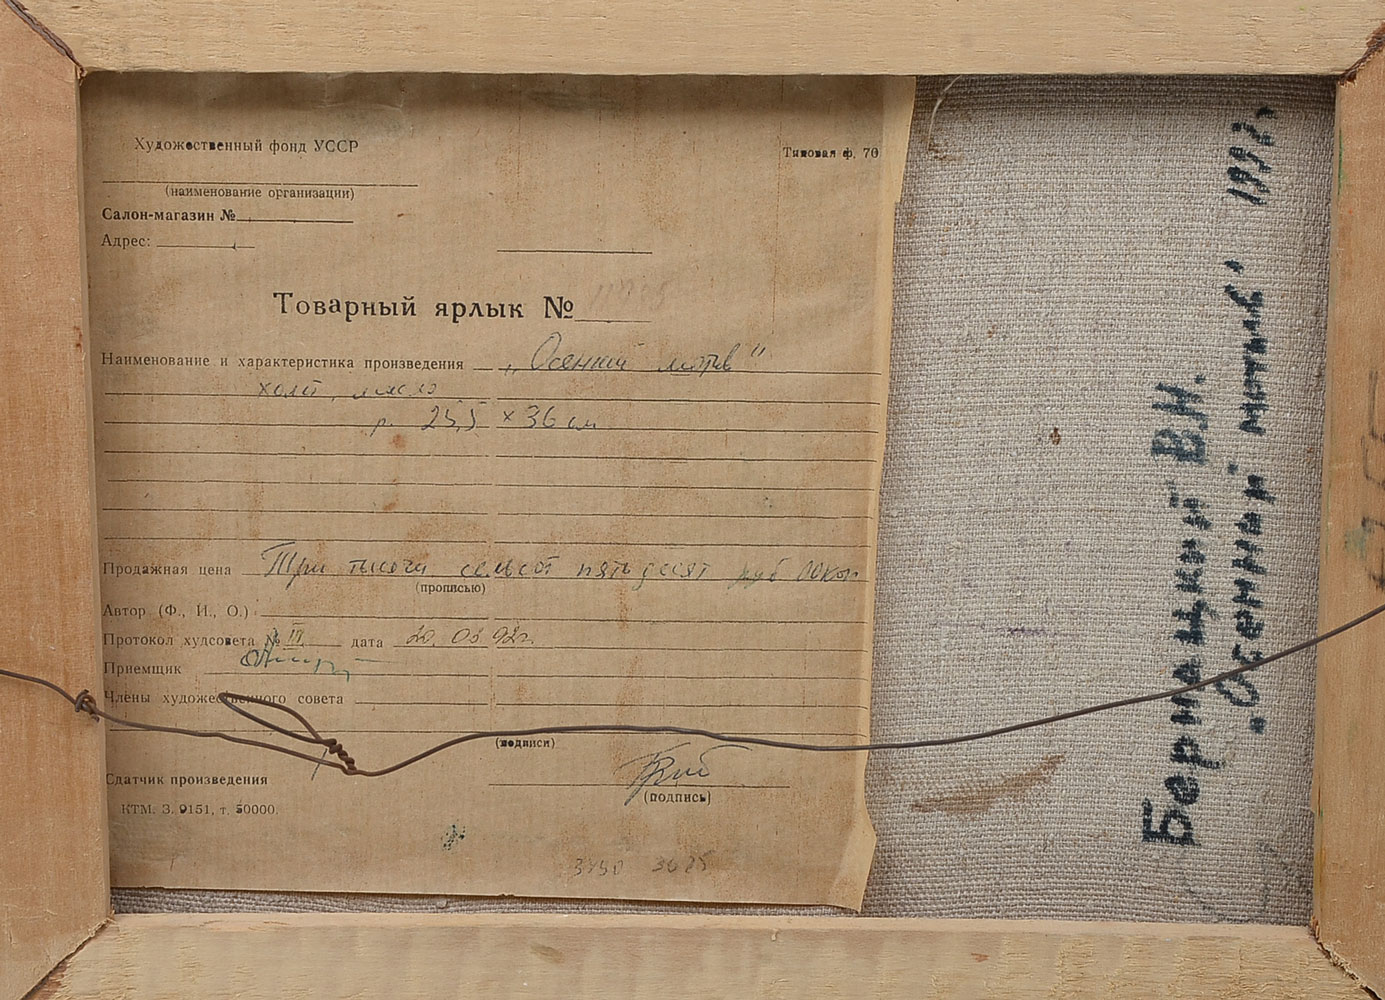 Художественный фонд УССР
Типовая ф. 70
(наименование организации)
Салон-магазин №
Адрес:
Товарный ярлык №
Наименование и характеристика произведения „Осенний мотив"
холст, масло
р. 25,5 × 36 см
Продажная цена Три тысячи семьсот пятьдесят руб 00коп
(прописью)
Автор (Ф., И., О.)
Протокол худсовета № дата 20. 03 92г.
Приемщик
Члены художественного совета
(подписи)
Сдатчик произведения
(подпись)
КТМ. З. 9151, т. 50000.
3750 3625
В.Н.
„Осенний мотив" 1992г.